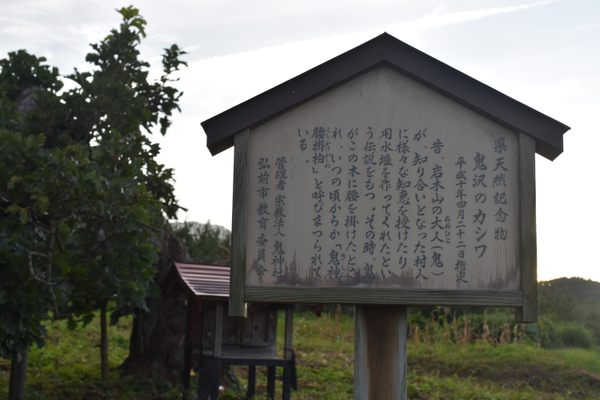 県天然記念物
鬼沢のカシワ
平成十年四月二十二日指定
昔、岩木山の大人(鬼)
が、知り合いとなった村人
に様々な知恵を授けたり
用水堰を作ってくれたとい
う伝説をもつ。その時、鬼
がこの木に腰を掛けたとさ
れ、いつの頃からか「鬼神
腰掛柏」と呼びまつられて
いる。
管理者 宗教法人鬼神社
弘前市教育委員会